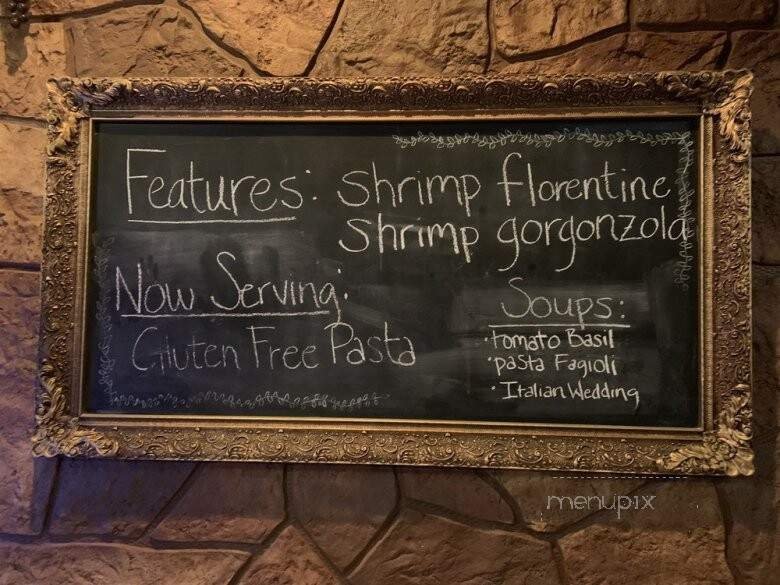 Features: shrimp florentine
shrimp gorgonzola
Now Serving:
Gluten Free Pasta
Soups:
• Tomato Basil
• Pasta Fagioli
• Italian Wedding
menupix